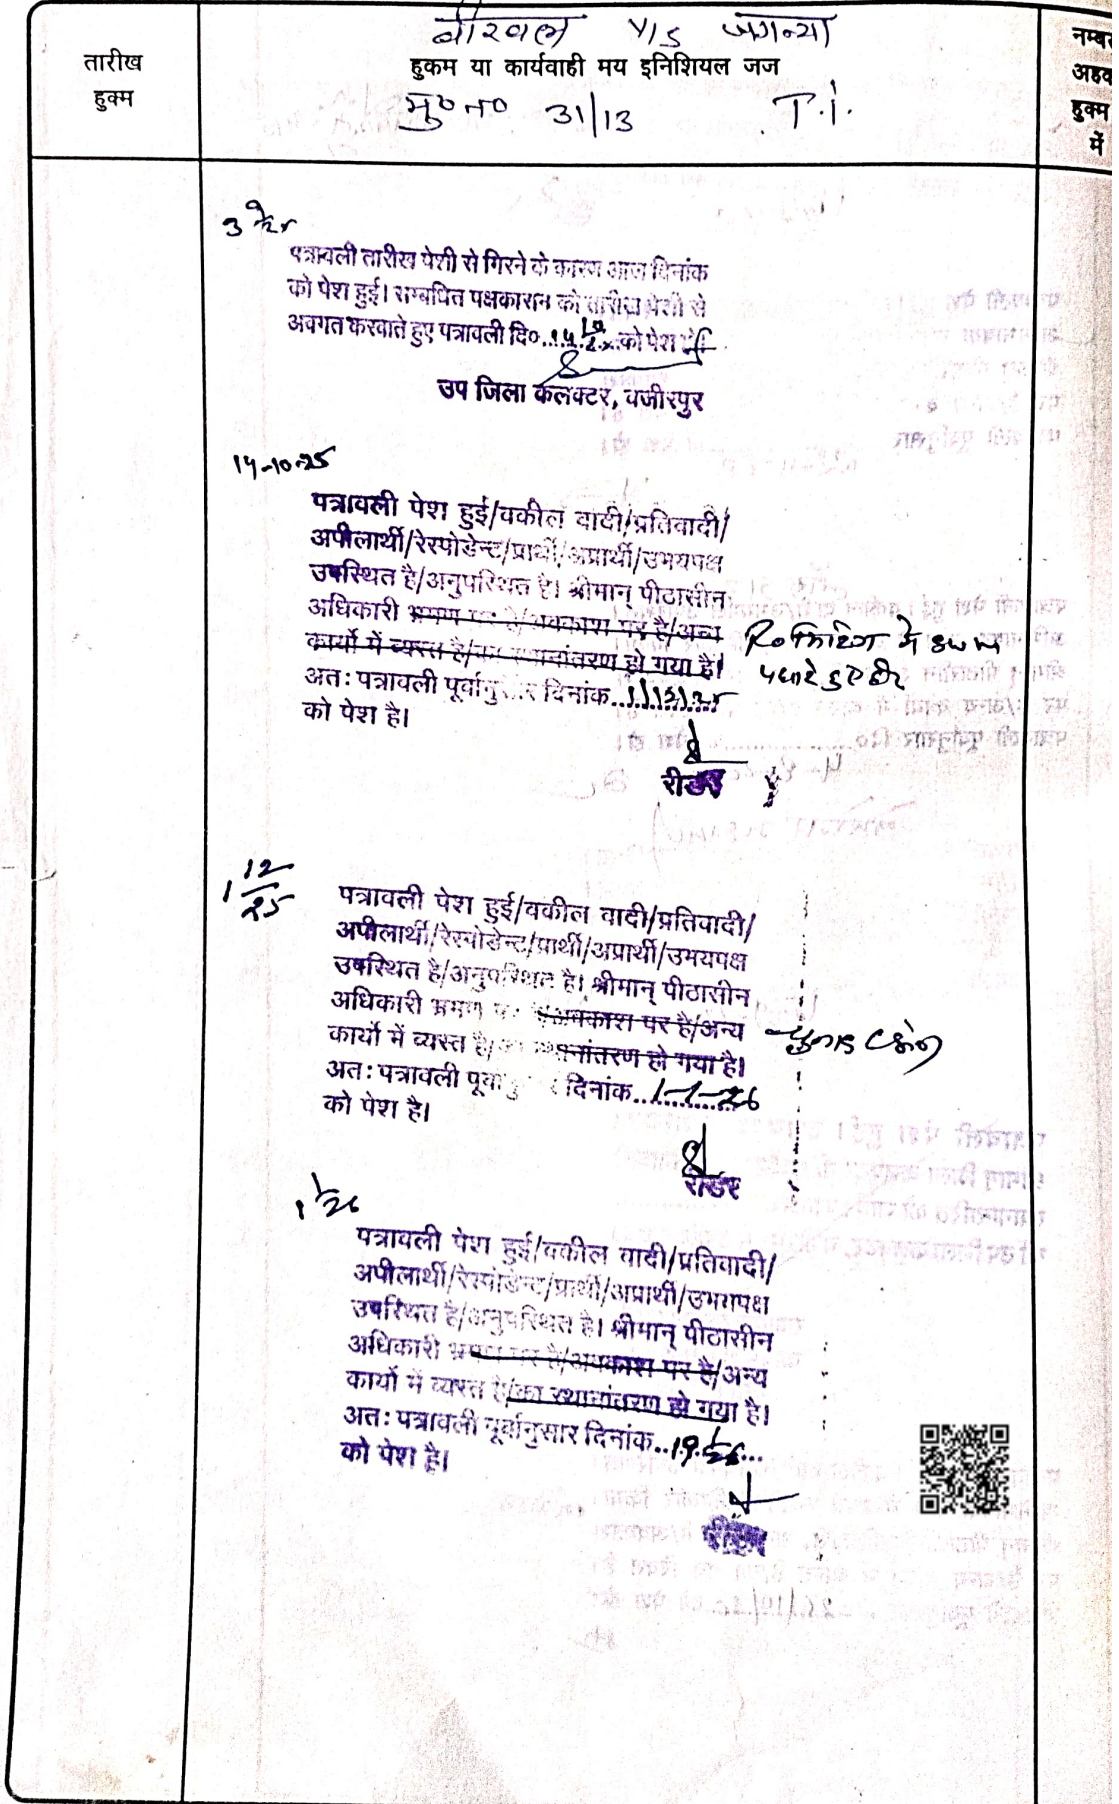 बीरवल V/S जगन्या
तारीख हुक्म
हुकम या कार्यवाही मय इनिशियल जज
मु०न० 31/13 T.i.
नम्बर
अहक
हुक्म
में
3
पत्रावली तारीख पेशी से गिरने के कारण आज दिनांक
को पेश हुई। सम्बधित पक्षकारान को तारीख पेशी से
अवगत करवाते हुए पत्रावली दि०..14.10...को पेश
उप जिला कलक्टर, वजीरपुर
14-10-25
पत्रावली पेश हुई/वकील वादी/प्रतिवादी/
अपीलार्थी/रेस्पोडेन्ट/प्रार्थी/अप्रार्थी/उभयपक्ष
उपस्थित है/अनुपस्थित है। श्रीमान् पीठासीन
अधिकारी भ्रमण पर है/अवकाश पर है/अन्य
कार्यो में व्यस्त है/का स्थानांतरण हो गया है।
अतः पत्रावली पूर्वानुसार दिनांक..1/12/25
को पेश है।
रीडर
1 12/25
पत्रावली पेश हुई/वकील वादी/प्रतिवादी/
अपीलार्थी/रेस्पोडेन्ट/प्रार्थी/अप्रार्थी/उभयपक्ष
उपस्थित है/अनुपस्थित है। श्रीमान् पीठासीन
अधिकारी भ्रमण पर है/अवकाश पर है/अन्य
कार्यो में व्यस्त है/का स्थानांतरण हो गया है।
अतः पत्रावली पूर्वानुसार दिनांक..1-1-26
को पेश है।
रीडर
1 1/26
पत्रावली पेश हुई/वकील वादी/प्रतिवादी/
अपीलार्थी/रेस्पोडेन्ट/प्रार्थी/अप्रार्थी/उभयपक्ष
उपस्थित है/अनुपस्थित है। श्रीमान् पीठासीन
अधिकारी भ्रमण पर है/अवकाश पर है/अन्य
कार्यो में व्यस्त है/का स्थानांतरण हो गया है।
अतः पत्रावली पूर्वानुसार दिनांक..19.1/26...
को पेश है।
रीडर